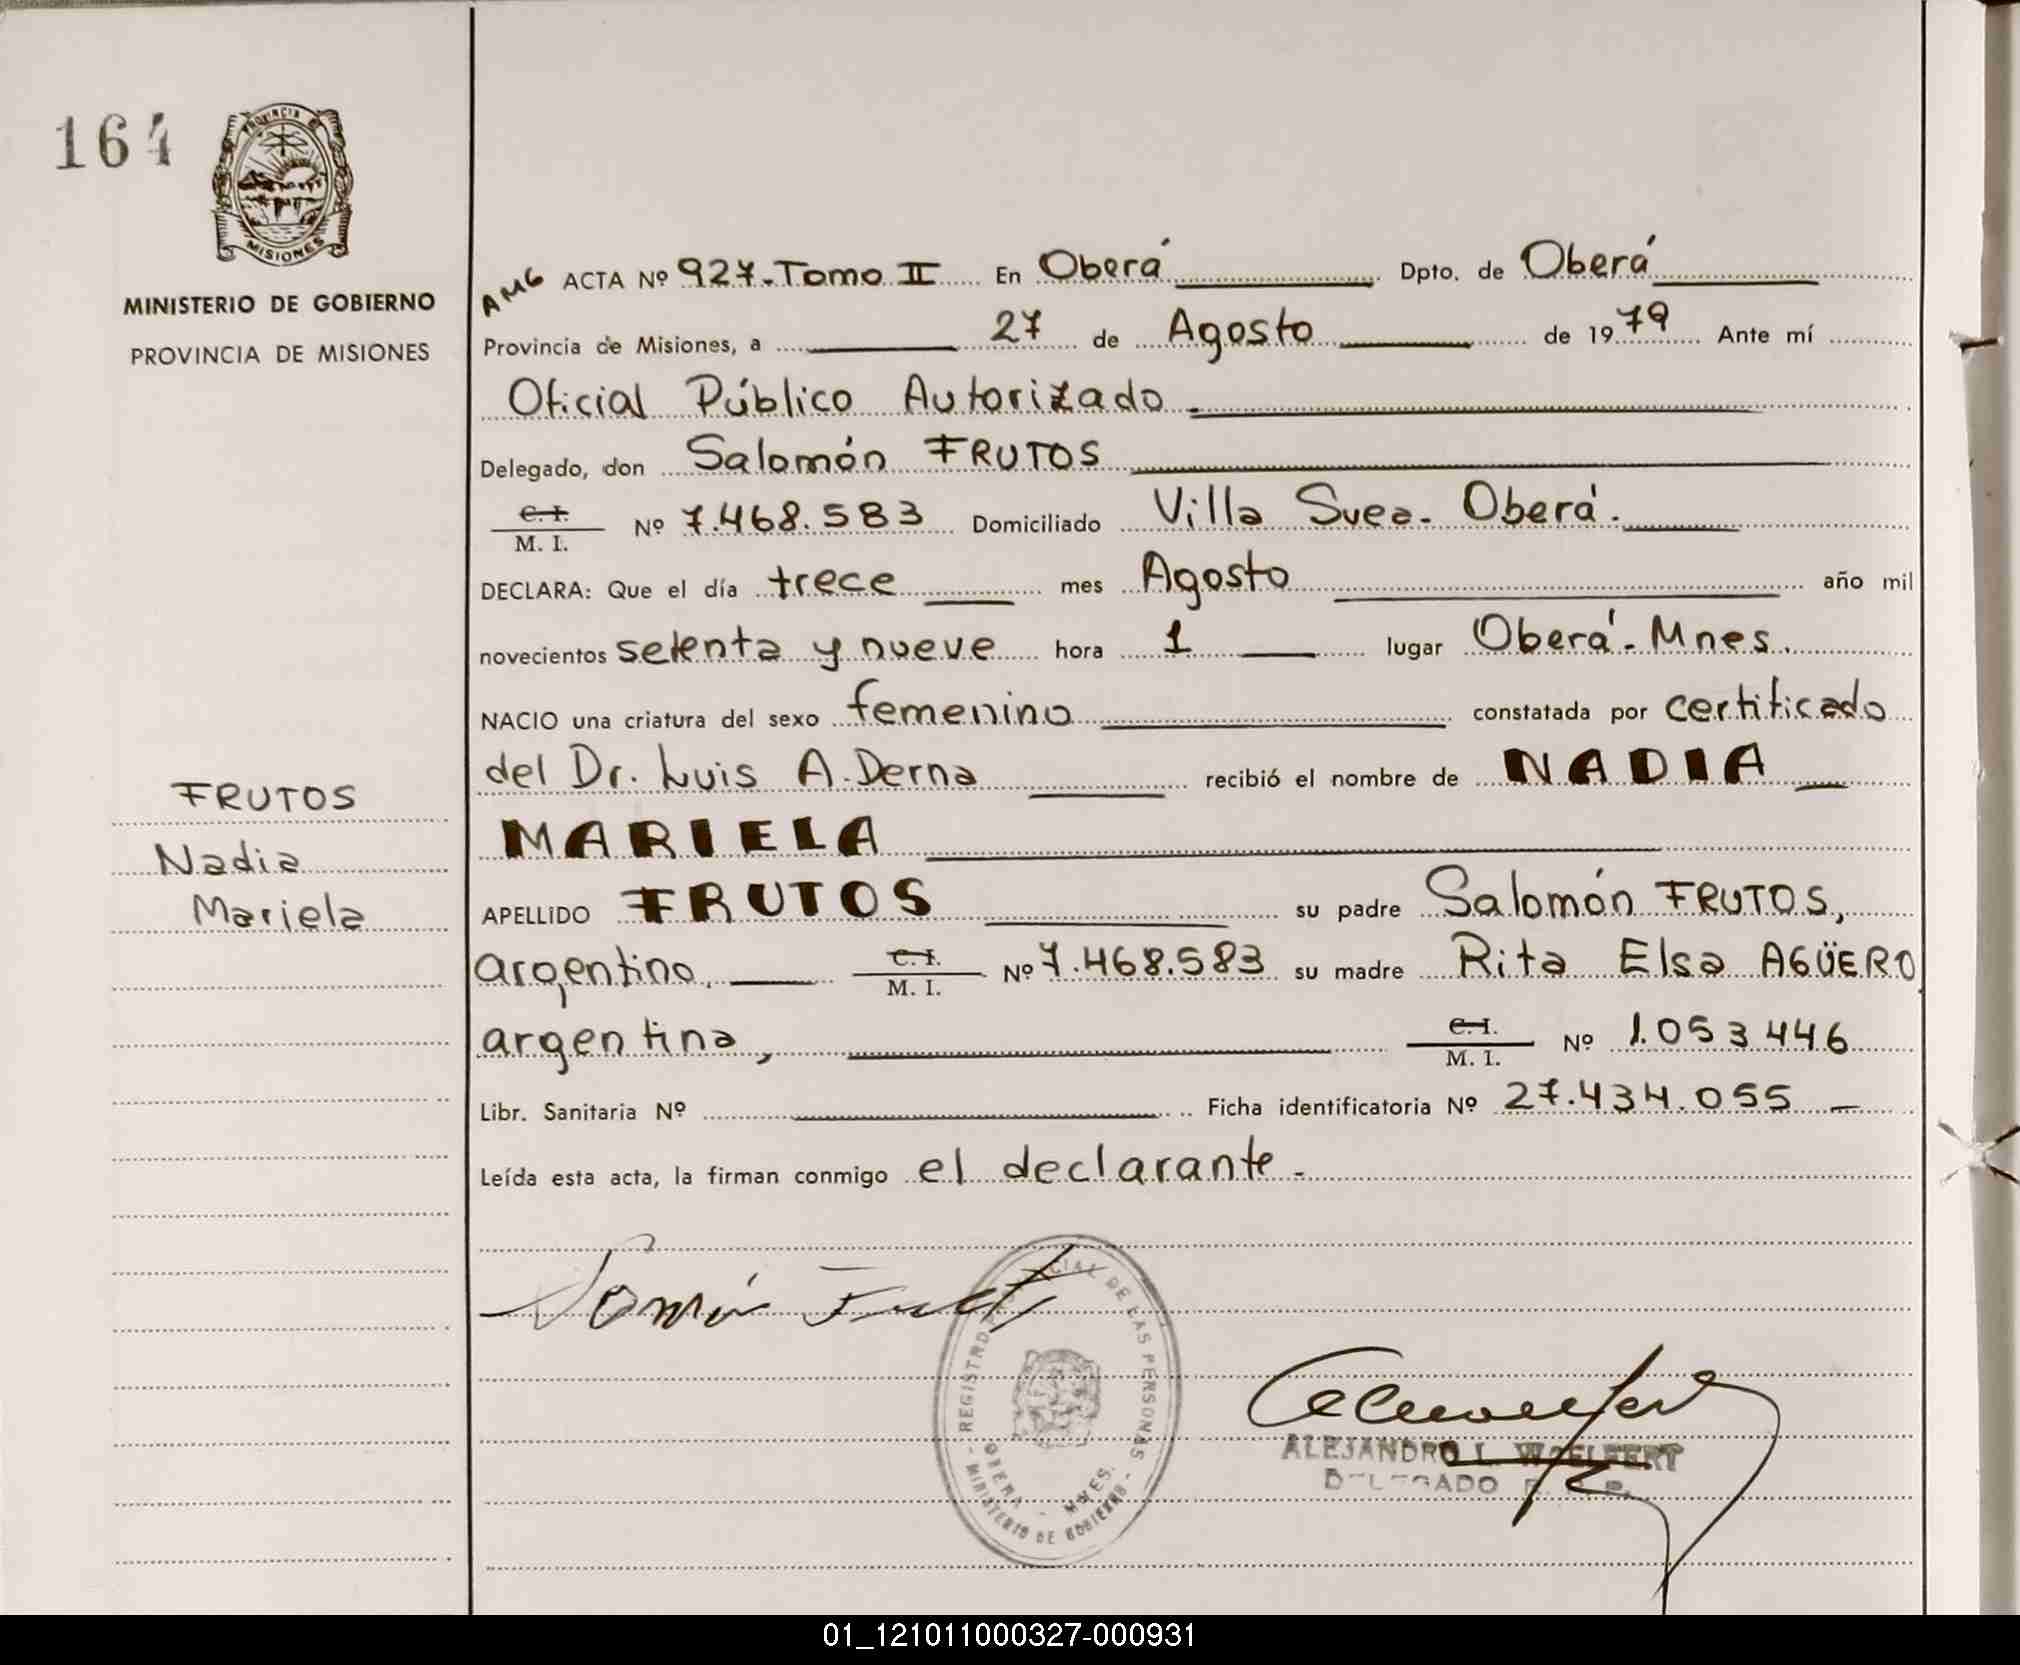 164
PROVINCIA DE
MISIONES
MINISTERIO DE GOBIERNO
PROVINCIA DE MISIONES
FRUTOS
Nadia
Mariela
AMG ACTA Nº 927-Tomo II En Oberá Dpto. de Oberá
Provincia de Misiones, a 27 de Agosto de 1979 Ante mí
Oficial Público Autorizado
Delegado, don Salomón FRUTOS
C. I.
M. I. Nº 7.468.583 Domiciliado Villa Svea- Oberá.
DECLARA: Que el día trece mes Agosto año mil
novecientos setenta y nueve hora 1 lugar Oberá- Mnes.
NACIO una criatura del sexo femenino constatada por certificado
del Dr. Luis A. Derna recibió el nombre de NADIA
MARIELA
APELLIDO FRUTOS su padre Salomón FRUTOS,
argentino, C. I.
M. I. Nº 7.468.583 su madre Rita Elsa AGÜERO
argentina, C. I.
M. I. Nº 1.053.446
Libr. Sanitaria Nº Ficha identificatoria Nº 27.434.055
Leída esta acta, la firman conmigo el declarante-
REGISTRO DE LAS PERSONAS
OBERA - MNES.
MINISTERIO DE GOBIERNO
ALEJANDRO L. WOELFERT
DELEGADO
01_121011000327-000931